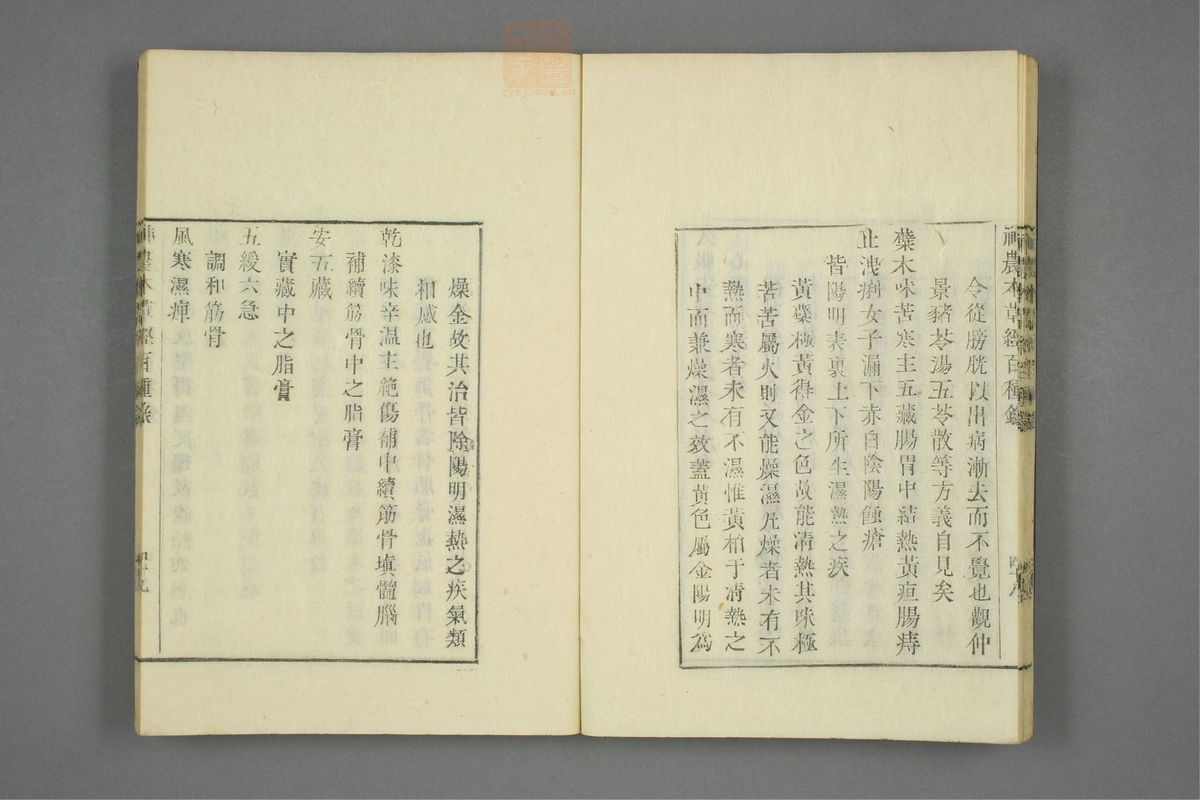 神農本草經百種錄
四十八
令從膀胱以出病漸去而不覺也觀仲
景豬苓湯五苓散等方義自見矣
蘗木味苦寒主五藏腸胃中結熱黃疸腸痔
止洩痢女子漏下赤白陰陽蝕瘡
皆陽明表裏上下所生濕熱之疾
黃蘗極黃得金之色故能清熱其味極
苦苦屬火則又能燥濕凡燥者未有不
熱而寒者未有不濕惟黃柏于清熱之
中而兼燥濕之效蓋黃色屬金陽明爲
燥金故其治皆除陽明濕熱之疾氣類
相感也
乾漆味辛溫主絶傷補中續筋骨塡髓腦
補續筋骨中之脂膏
安五藏
實藏中之脂膏
五緩六急
調和筋骨
風寒濕痺
神農本草經百種錄
四十九
zysj.com.cn